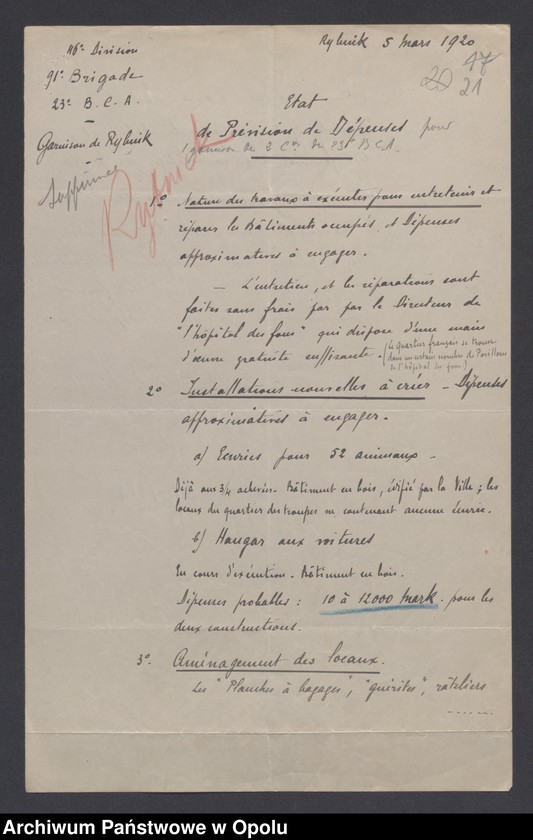 46e Division
91e Brigade
23e B.C.A.
Garnison de Rybnik
Supprimée
Rybnik
Rybnik 5 Mars 1920
20 47
21
Etat
de Prévision de Dépenses pour
garnison de 2 Cies du 23e B.C.A.
1º Nature des travaux à exécuter pour entretenir et
réparer les Bâtiments occupés, et Dépenses
approximatives à engager.
— L'entretien, et les réparations sont
faites sans frais par par le Directeur de
"l'hôpital des fous" qui dispose d'une main
d'œuvre gratuite suffisante - (le quartier français se trouve
dans un certain nombre de Pavillons
de l'hôpital des fous)
2º Installations nouvelles à créer - Dépenses
approximatives à engager.
a) Ecuries pour 52 animaux -
Déjà aux 3/4 achevées. Bâtiment en bois, édifié par la Ville ; les
locaux du quartier des troupes ne contenant aucune écurie.
b) Hangar aux voitures
En cours d'exécution. Bâtiment en bois.
Dépenses probables : 10 à 12000 Mark. pour les
deux constructions.
3º. Aménagement des locaux.
Les "Planches à bagages", "guérites", râteliers
......
Archiwum Państwowe w Opolu